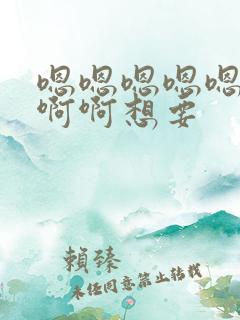 嗯嗯嗯嗯嗯
啊啊想要
賴臻
未经同意禁止转载